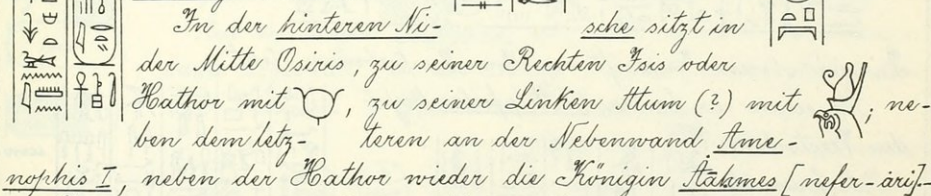 In der hinteren Ni- sche sitzt in
der Mitte Osiris, zu seiner Rechten Isis oder
Hathor mit , zu seiner Linken Atum (?) mit ; ne-
ben dem letz- teren an der Nebenwand Ame-
nophis I, neben der Hathor wieder die Königin Āāhmes [nefer-āri].